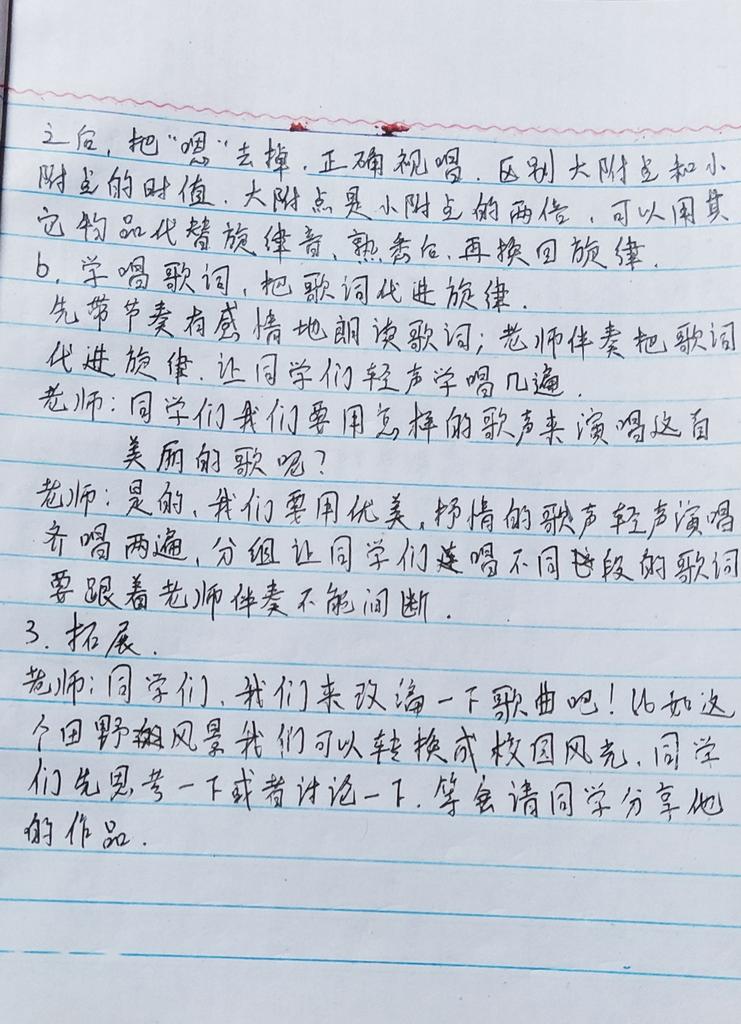 之后，把“嗯”去掉.正确视唱.区别大附点和小
附点的时值.大附点是小附点的两倍，可以用其
它物品代替旋律音、熟悉后、再换回旋律.
b.学唱歌词，把歌词代进旋律.
先带节奏有感情地朗读歌词；老师伴奏把歌词
代进旋律.让同学们轻声学唱几遍.
老师：同学们我们要用怎样的歌声来演唱这首
美丽的歌呢？
老师：是的，我们要用优美，抒情的歌声轻声演唱
齐唱两遍，分组让同学们唱不同段的歌词
要跟着老师伴奏不能间断.
3.拓展.
老师：同学们、我们来改编一下歌曲吧！比如这
个田野风景我们可以转换成校园风光、同学
们先思考一下或者讨论一下.等会请同学分享他
的作品.